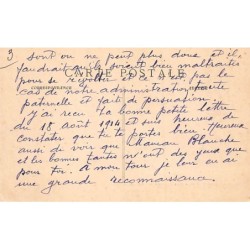 3
sont on ne peut plus doux et il
faudrait qu'ils soient bien maltraités
CARTE POSTALE
pour se révolter et ce n'est pas le
CORRESPONDANCE
cas de notre administration toute
paternelle et faite de persuasion.
J'ai reçu ta bonne petite lettre
du 18 Août 1914 et suis heureux de
constater que tu te portes bien. Heureux
aussi de voir que Maman Blanche
et les bonnes tantes n'ont des yeux que
pour toi. À mon tour je leur en ai
une grande reconnaissance.